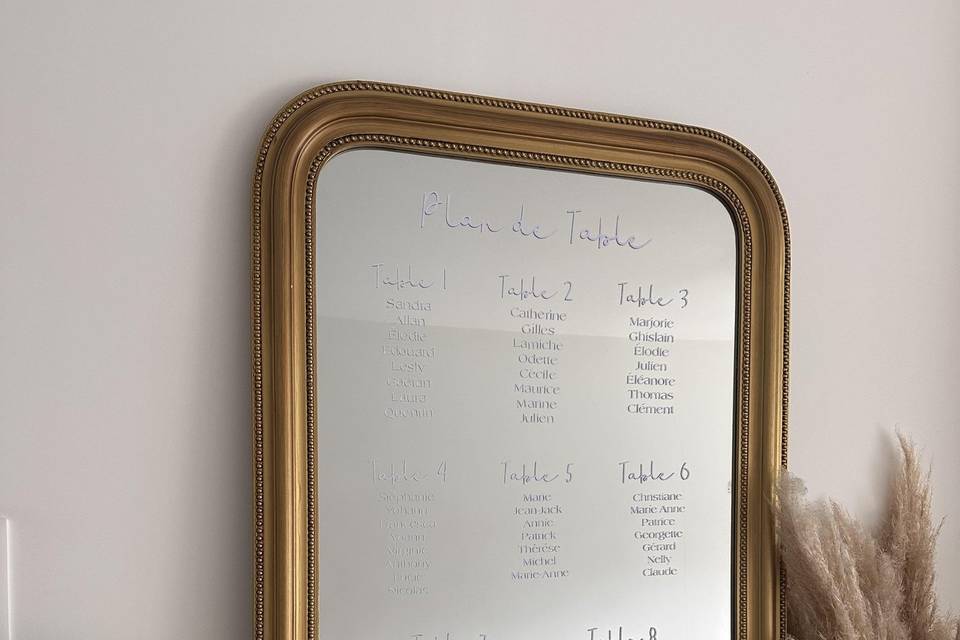 Plan de Table
Table 1
Sandra
Allan
Élodie
Édouard
Lesly
Gaétan
Laura
Quentin
Table 2
Catherine
Gilles
Lamiche
Odette
Cécile
Maurice
Marine
Julien
Table 3
Marjorie
Ghislain
Élodie
Julien
Éléanore
Thomas
Clément
Table 4
Stéphanie
Yohann
Francesca
Yoann
Virginie
Anthony
Nicolas
Table 5
Marie
Jean-Jack
Annie
Patrick
Thérèse
Michel
Marie-Anne
Table 6
Christiane
Marie Anne
Patrice
Georgette
Gérard
Nelly
Claude
Table 7
Table 8